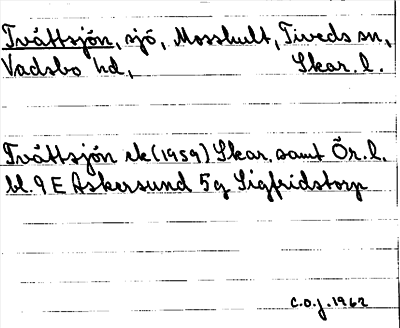 Tvättsjön, sjö, Mosshult, Tiveds sn,
Vadsbo hd, Skar. l.
Tvättsjön ek (1959) Skar. samt Ör. l.
bl. 9 E Askersund 5g Sigfridstorp
C.O.J. 1962